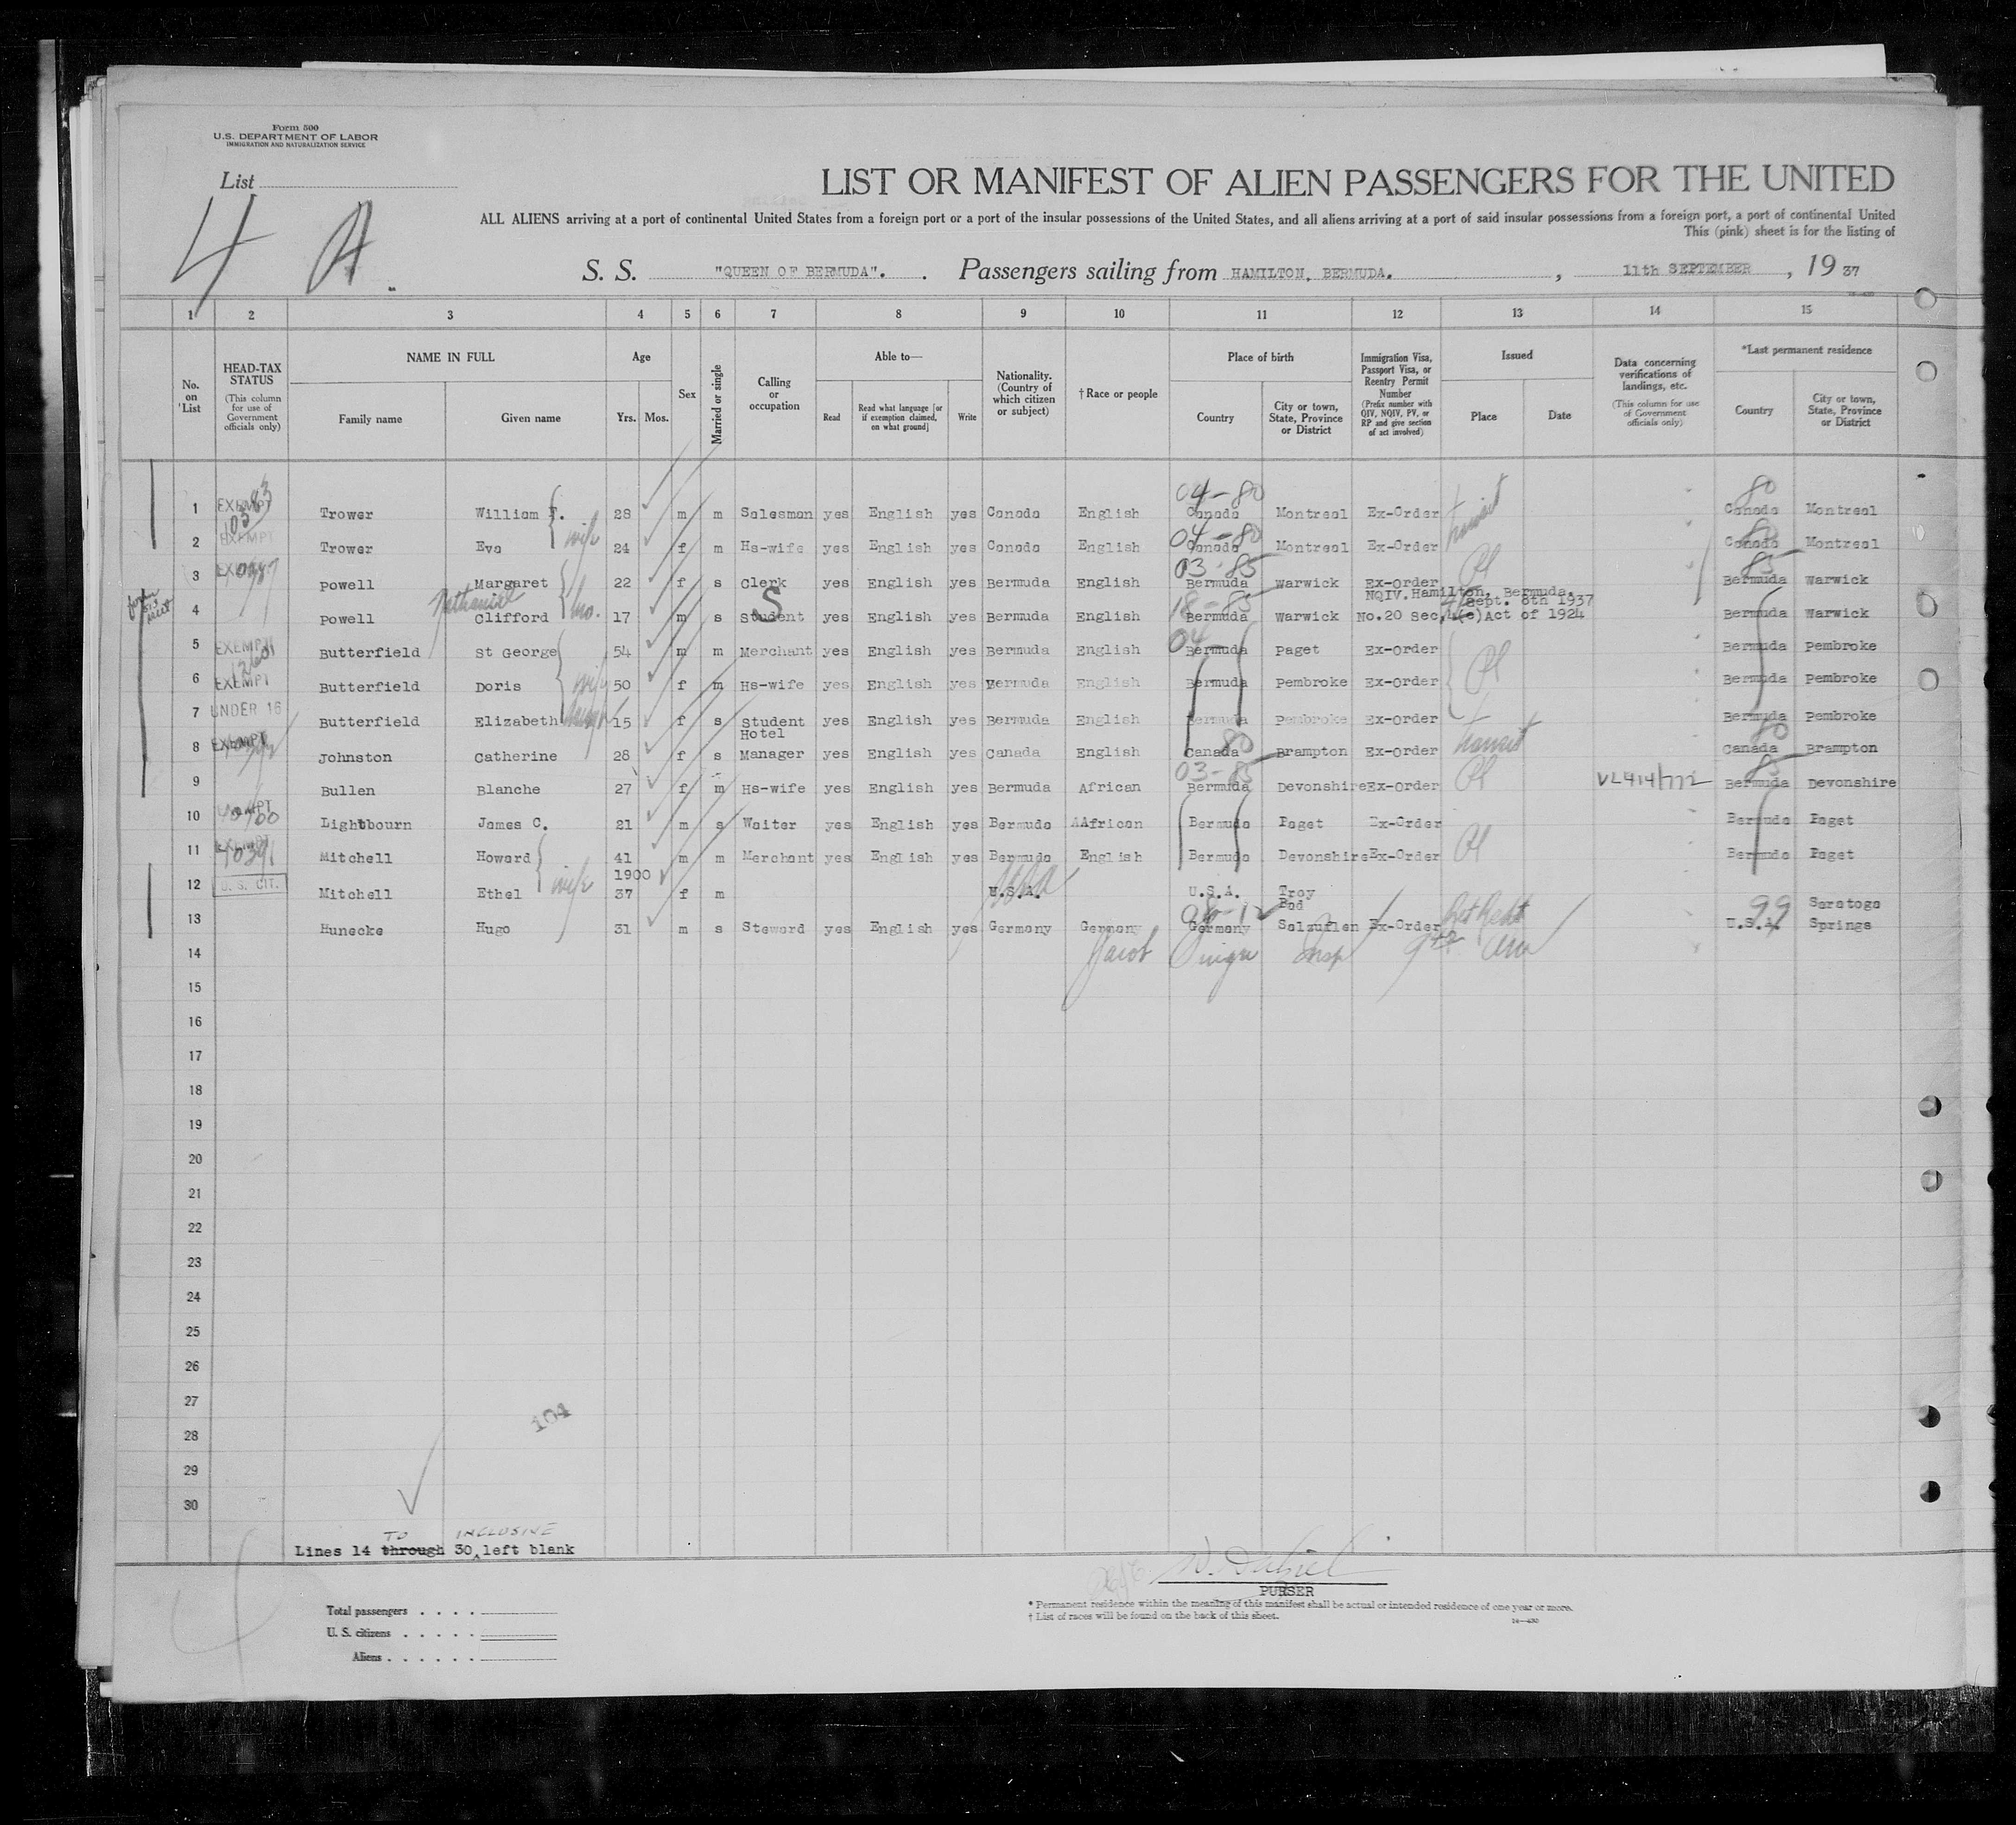 Form 500
U.S. DEPARTMENT OF LABOR
IMMIGRATION AND NATURALIZATION SERVICE
List
4 A.
LIST OR MANIFEST OF ALIEN PASSENGERS FOR THE UNITED
ALL ALIENS arriving at a port of continental United States from a foreign port or a port of the insular possessions of the United States, and all aliens arriving at a port of said insular possessions from a foreign port, a port of continental United
This (pink) sheet is for the listing of
S. S. "QUEEN OF BERMUDA". Passengers sailing from HAMILTON, BERMUDA. , 11th SEPTEMBER , 19 37
1 2 3 4 5 6 7 8 9 10 11 12 13 14 15
No. on List
HEAD-TAX STATUS (This column for use of Government officials only)
NAME IN FULL Family name Given name
Age Yrs. Mos.
Sex
Married or single
Calling or occupation
Able to— Read Read what language [or if exemption claimed, on what ground] Write
Nationality. (Country of which citizen or subject)
† Race or people
Place of birth Country City or town, State, Province or District
Immigration Visa, Passport Visa, or Reentry Permit Number (Prefix number with QIV, NQIV, PV, or RP and give section of act involved)
Issued Place Date
Data concerning verifications of landings, etc. (This column for use of Government officials only)
*Last permanent residence Country City or town, State, Province or District
04-80 80
1 EXEMPT Trower William F. 28 m m Salesman yes English yes Canada English Canada Montreal Ex-Order transit Canada Montreal
04-80 80
2 EXEMPT Trower Eva wife 24 f m Hs-wife yes English yes Canada English Canada Montreal Ex-Order Canada Montreal
03-85 85
3 Powell Margaret 22 f s Clerk yes English yes Bermuda English Bermuda Warwick Ex-Order Bermuda Warwick
NQIV. Hamilton, Bermuda.
Nathaniel S 18-85 Sept. 8th 1937
4 Powell Clifford bro. 17 m s Student yes English yes Bermuda English Bermuda Warwick No.20 Sec.4(e)Act of 1924 Bermuda Warwick
04
5 EXEMPT Butterfield St George 54 m m Merchant yes English yes Bermuda English Bermuda Paget Ex-Order Bermuda Pembroke
6 EXEMPT Butterfield Doris wife 50 f m Hs-wife yes English yes Bermuda English Bermuda Pembroke Ex-Order Bermuda Pembroke
7 UNDER 16 Butterfield Elizabeth 15 f s Student yes English yes Bermuda English Bermuda Pembroke Ex-Order Bermuda Pembroke
Hotel 80 80
8 EXEMPT Johnston Catherine 28 f s Manager yes English yes Canada English Canada Brampton Ex-Order transit Canada Brampton
03-85 85
9 Bullen Blanche 27 f m Hs-wife yes English yes Bermuda African Bermuda Devonshire Ex-Order VL414/772 Bermuda Devonshire
10 Lightbourn James C. 21 m s Waiter yes English yes Bermuda AAfrican Bermuda Paget Ex-Order Bermuda Paget
11 EXEMPT Mitchell Howard 41 m m Merchant yes English yes Bermuda English Bermuda Devonshire Ex-Order Bermuda Paget
1900
12 U. S. CIT. Mitchell Ethel wife 37 f m U.S.A. U.S.A. Troy
Bad 99 Saratoga
13 Hunecke Hugo 31 m s Steward yes English yes Germany Germany Germany Salzuflen Ex-Order U.S.A. Springs
14 Jacob Insp
15
16
17
18
19
20
21
22
23
24
25
26
27
104
28
29
30
TO INCLUSIVE
Lines 14 through 30 left blank
PURSER
Total passengers
U. S. citizens
Aliens
* Permanent residence within the meaning of this manifest shall be actual or intended residence of one year or more.
† List of races will be found on the back of this sheet.
14—430